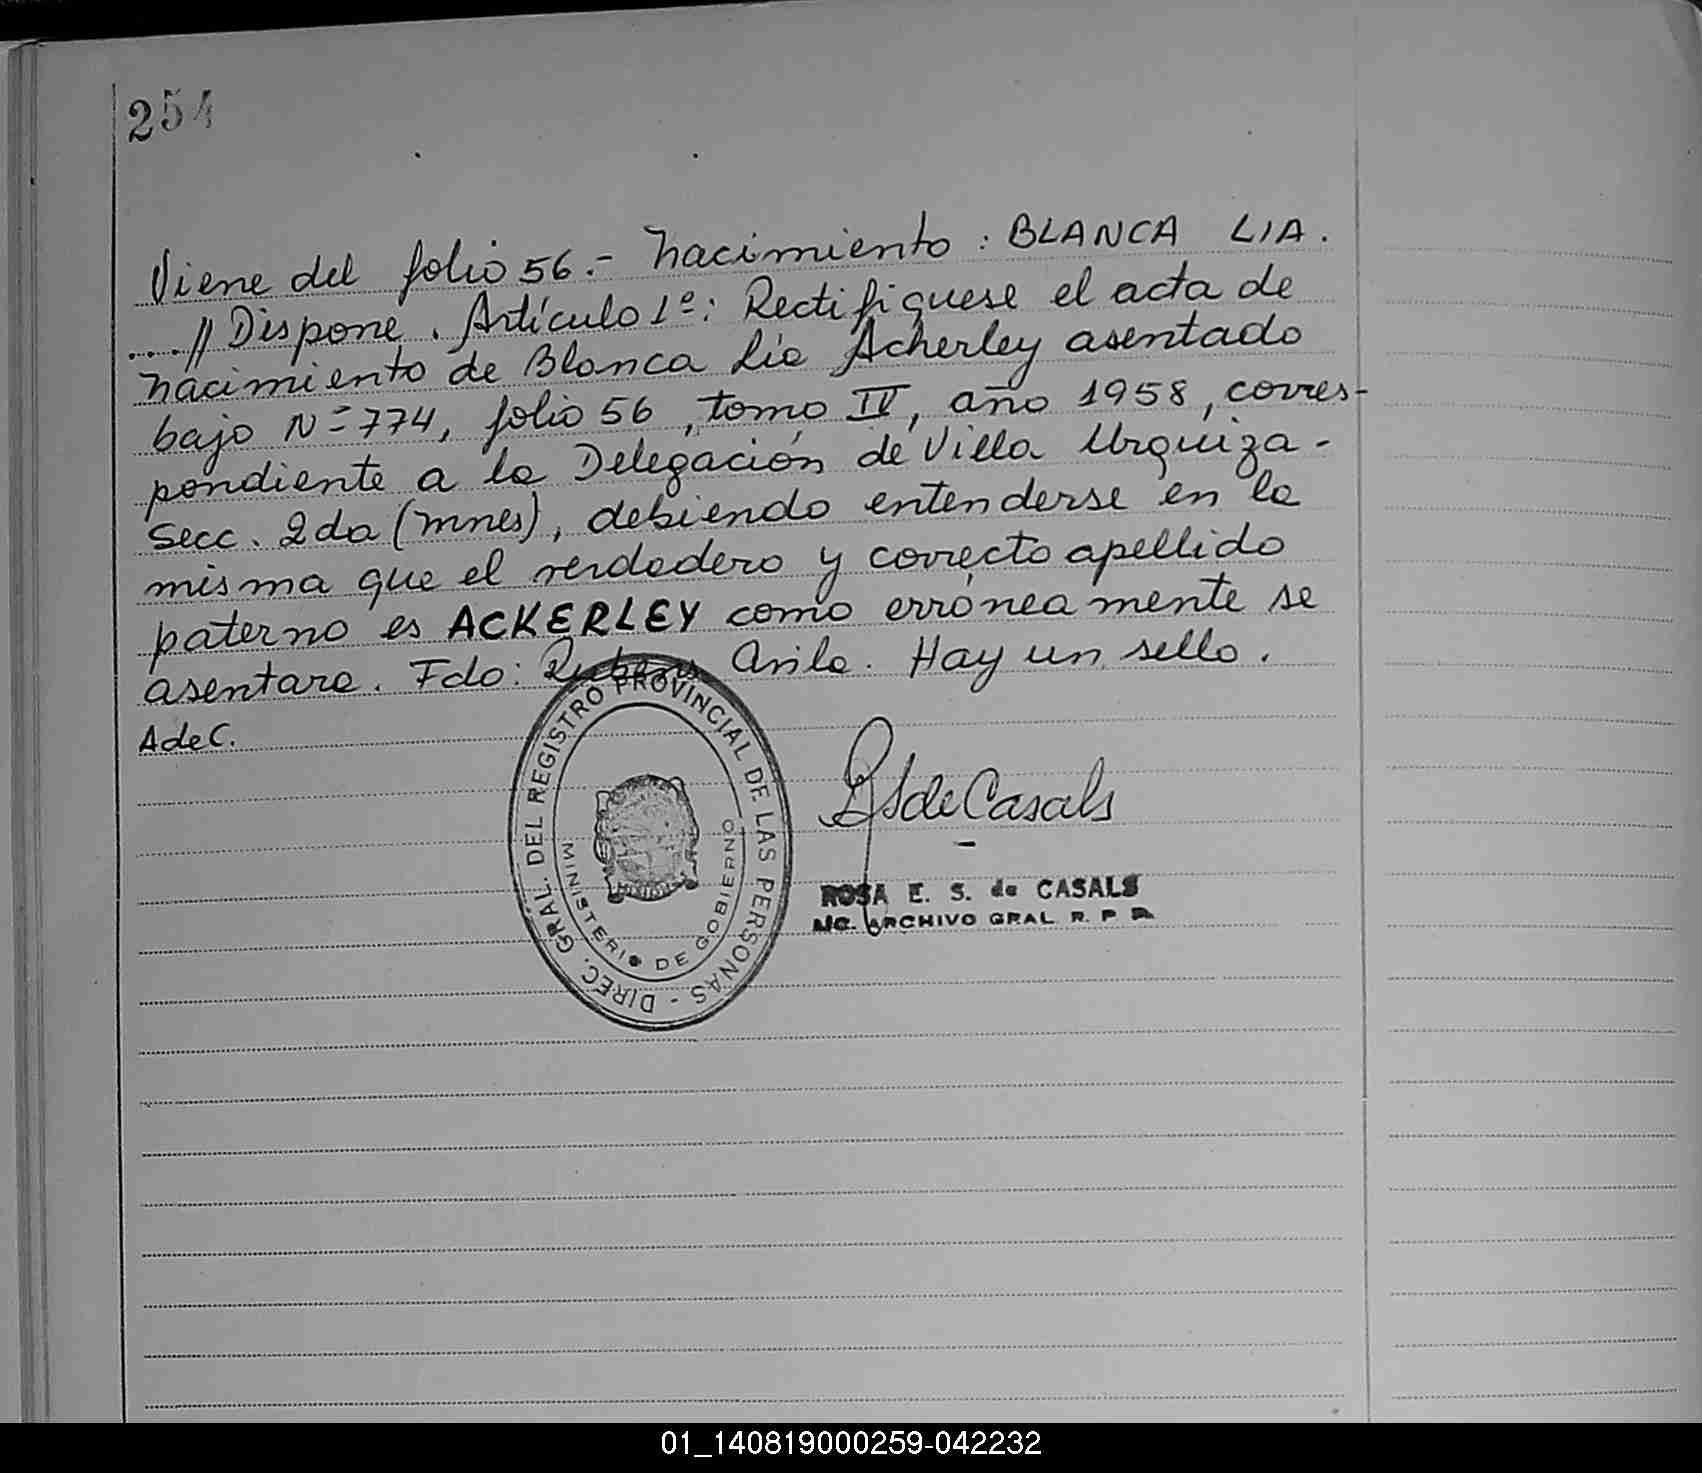 254
Viene del folio 56.- Nacimiento: BLANCA LIA.
....// Dispone. Artículo 1º: Rectifiquese el acta de
nacimiento de Blanca Lia Acherley asentado
bajo Nº 774, folio 56, tomo IV, año 1958, corres-
pondiente a la Delegación de Villa Urquiza-
Secc. 2da (mnes), debiendo entenderse en la
misma que el verdadero y correcto apellido
paterno es ACKERLEY como erróneamente se
asentara. Fdo: Rubens Avila. Hay un sello.
AdeC.
DIREC. GRAL. DEL REGISTRO PROVINCIAL DE LAS PERSONAS -
MINISTERIO DE GOBIERNO
ESdeCasals
ROSA E. S. de CASALS
ARCHIVO GRAL R. P. P.
01_140819000259-042232